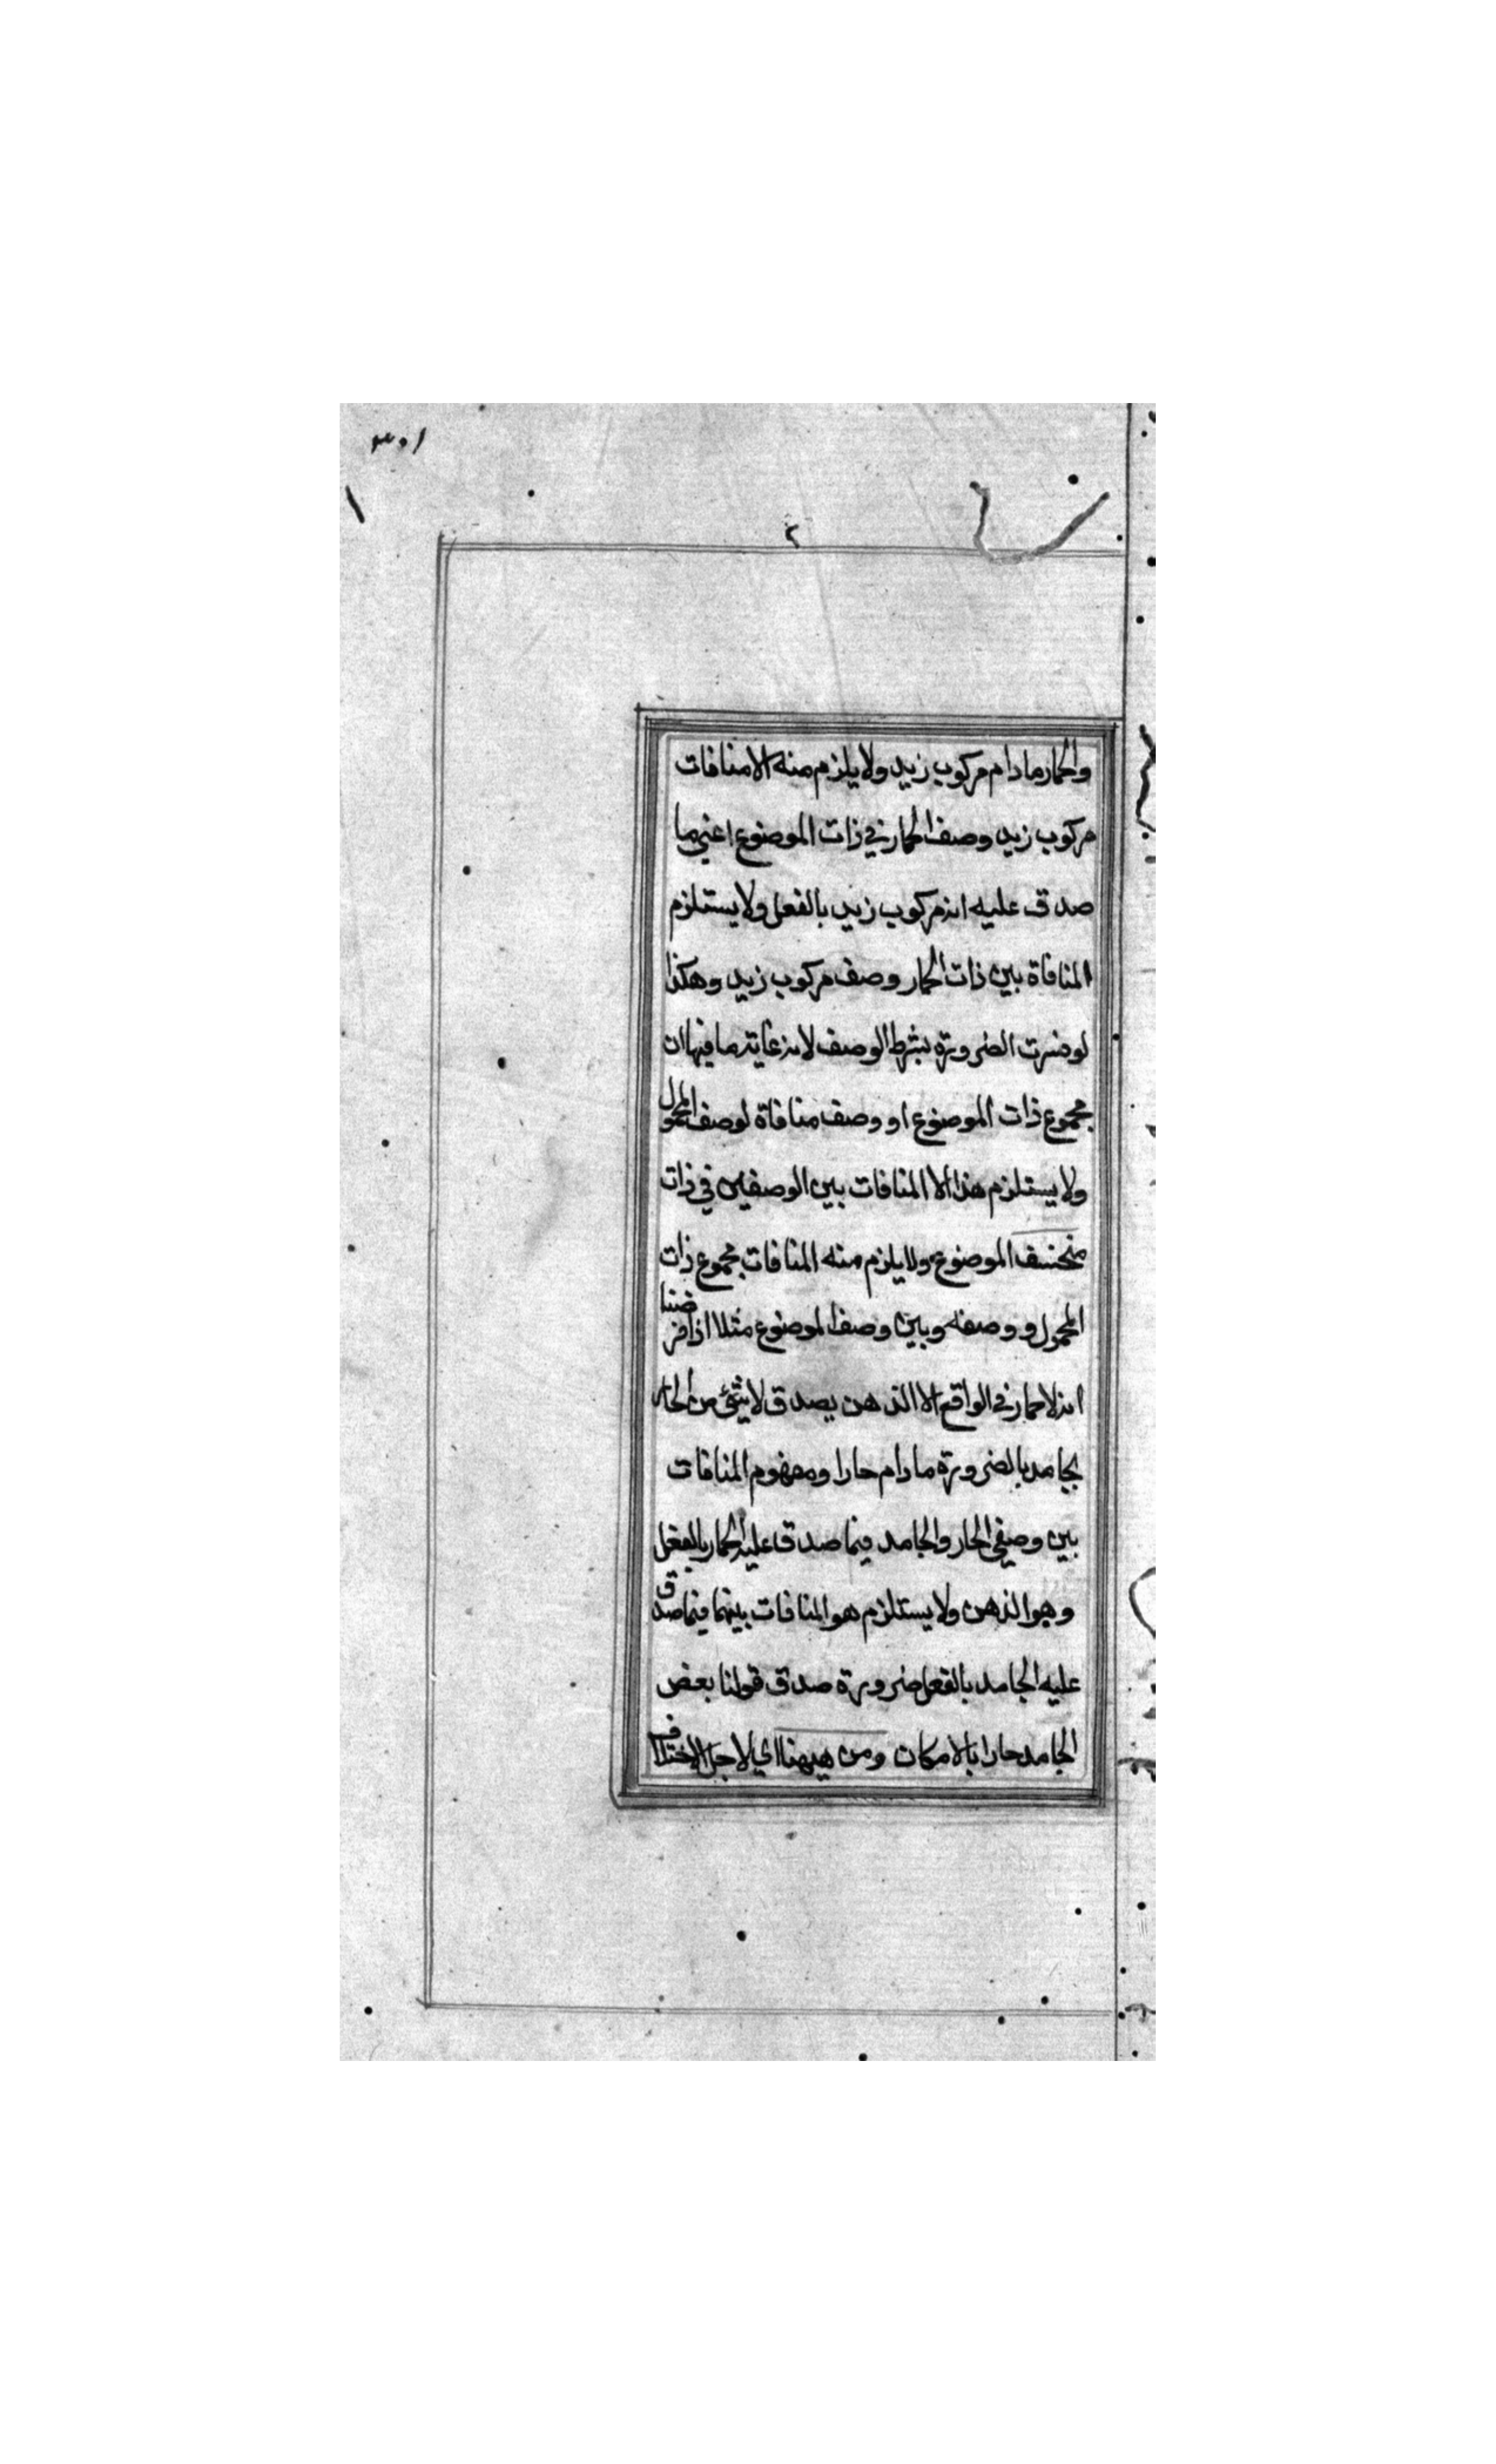 ١٠٣
والحمار مادام مركوب زيد ولا يلزم منه الا منافات
مركوب زيد وصف الحمار في ذات الموضوع اعني ما
صدق عليه انه مركوب زيد بالفعل ولا يستلزم
المنافاة بين ذات الحمار وصف مركوب زيد وهكذا
لو ضرت الضرورة بشرط الوصف لانه غاية ما فيها ان
مجموع ذات الموضوع او وصف منافاة لوصف المحمول
ولا يستلزم هذا الا المنافات بين الوصفين في ذات
الموضوع ولا يلزم منه المنافات مجموع ذات
المحمول و وصفه وبين وصف الموضوع مثلا اذا فرضنا
انه لا حار في الواقع الا الذهن يصدق لا شئ من الحار
بجامد بالضرورة مادام حارا ومفهوم المنافات
بين وصفي الحار والجامد فيما صدق عليه الحمار بالفعل
وهو الذهن ولا يستلزم هو المنافات بينهما فيما صدق
عليه الجامد بالفعل ضرورة صدق قولنا بعض
الجامد حارا بالامكان ومن هيهنا اي لاجل الاختلاف